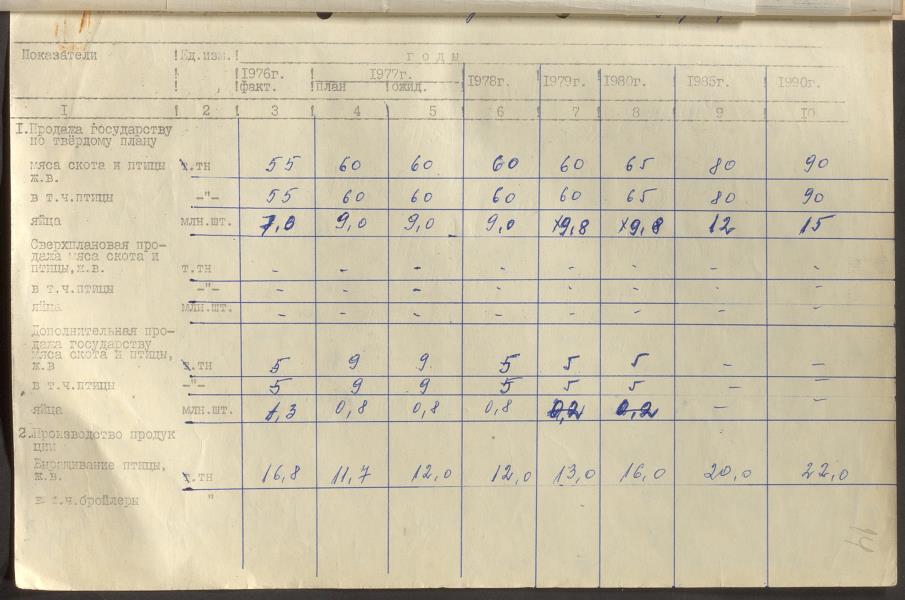 Показатели Ед.изм. годы
1976г. 1977г. 1978г. 1979г. 1980г. 1985г. 1990г.
факт. план ожид.
I 2 3 4 5 6 7 8 9 10
I. Продажа государству
по твёрдому плану
мяса скота и птицы т.тн 55 60 60 60 60 65 80 90
ж.в.
в т.ч.птицы -"- 55 60 60 60 60 65 80 90
яйца млн.шт. 7,0 9,0 9,0 9,0 9,8 9,8 12 15
Сверхплановая про-
дажа мяса скота и
птицы,ж.в. т.тн - - - - - - - -
в т.ч.птицы -"- - - - - - - - -
яйца млн.шт. - - - - - - - -
Дополнительная про-
дажа государству
мяса скота и птицы,
ж.в т.тн 5 9 9 5 5 5 - -
в т.ч.птицы -"- 5 9 9 5 5 5 - -
яйца млн.шт. 1,3 0,8 0,8 0,8 0,2 0,2 - -
2.Производство продук
ции
Выращивание птицы,
ж.в. т.тн 16,8 11,7 12,0 12,0 13,0 16,0 20,0 22,0
в т.ч.бройлеры "